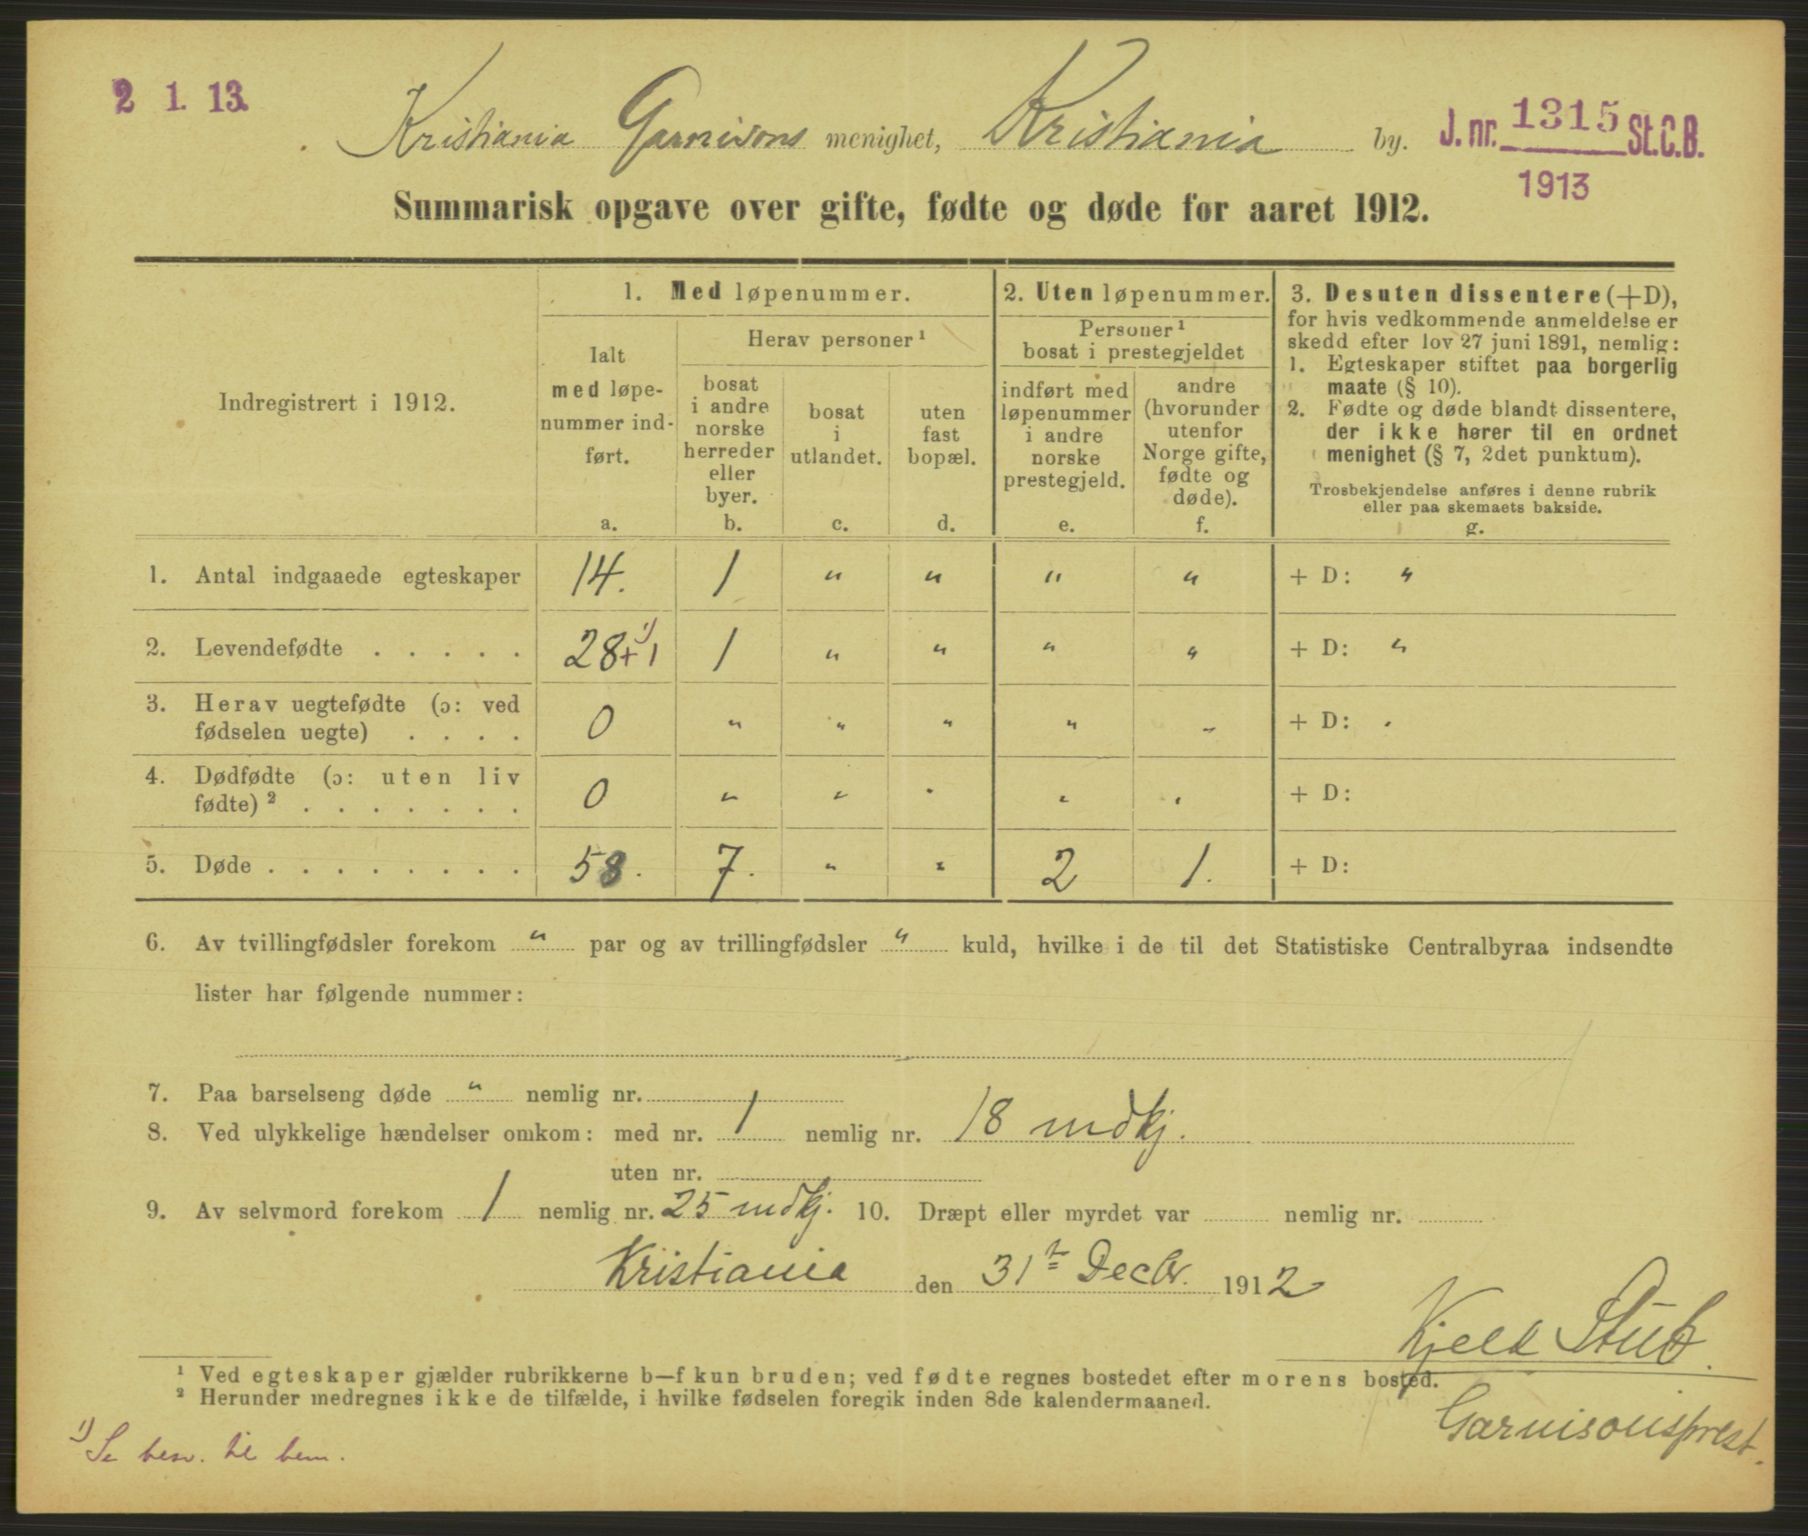 2 1. 13.
Kristiania Garnisons menighet, Kristiania by.
J. nr. 1315 St.C.B.
1913
Summarisk opgave over gifte, fødte og døde for aaret 1912.
Indregistrert i 1912.
1. Med løpenummer.
Ialt
med løpe-
nummer ind-
ført.
a.
Herav personer ¹
bosat
i andre
norske
herreder
eller
byer.
b.
bosat
i
utlandet.
c.
uten
fast
bopæl.
d.
2. Uten løpenummer.
Personer ¹
bosat i prestegjeldet
indført med
løpenummer
i andre
norske
prestegjeld.
e.
andre
(hvorunder
utenfor
Norge gifte,
fødte og
døde).
f.
3. Desuten dissentere (+D),
for hvis vedkommende anmeldelse er
skedd efter lov 27 juni 1891, nemlig:
1. Egteskaper stiftet paa borgerlig
maate (§ 10).
2. Fødte og døde blandt dissentere,
der ikke hører til en ordnet
menighet (§ 7, 2det punktum).
Trosbekjendelse anføres i denne rubrik
eller paa skemaets bakside.
g.
1. Antal indgaaede egteskaper 14. 1 " " " " + D: "
2. Levendefødte . . . . . 28+1 ¹) 1 " " " " + D: "
3. Herav uegtefødte (ɔ: ved
fødselen uegte) . . . . 0 " " " " " + D: "
4. Dødfødte (ɔ: uten liv
fødte) ² . . . . . . . 0 " " " " " + D:
5. Døde . . . . . . . . . 58. 7. " " 2 1. + D:
6. Av tvillingfødsler forekom " par og av trillingfødsler " kuld, hvilke i de til det Statistiske Centralbyraa indsendte
lister har følgende nummer:
7. Paa barselseng døde " nemlig nr.
8. Ved ulykkelige hændelser omkom: med nr. 1 nemlig nr. 18 mdkj.
uten nr.
9. Av selvmord forekom 1 nemlig nr. 25 mdkj. 10. Dræpt eller myrdet var nemlig nr.
Kristiania den 31te Decbr. 1912
Kjeld Stub.
Garnisonsprest.
¹ Ved egteskaper gjælder rubrikkerne b—f kun bruden; ved fødte regnes bostedet efter morens bosted.
² Herunder medregnes ikke de tilfælde, i hvilke fødselen foregik inden 8de kalendermaaned.
¹) Se besv. til bem.